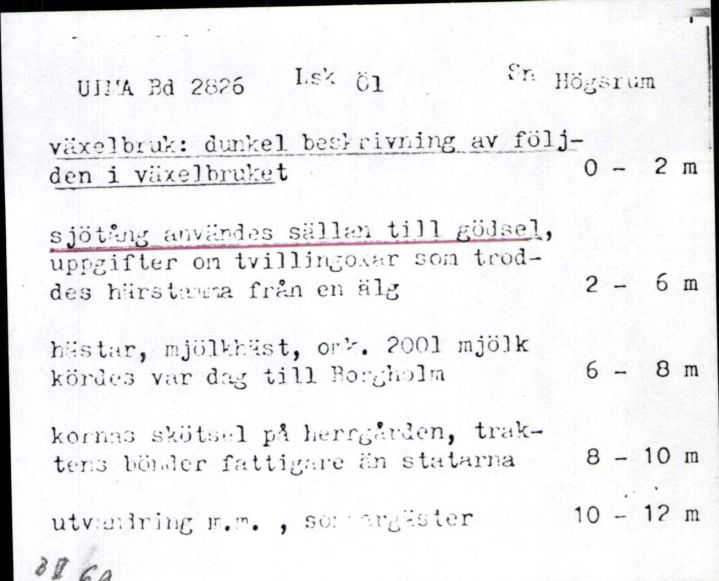 ULMA Bd 2826 Lsk Öl Sn Högsrum
växelbruk: dunkel beskrivning av följ-
den i växelbruket 0 - 2 m
sjötång användes sällan till gödsel,
uppgifter om tvillingoxar som trod-
des härstamma från en älg 2 - 6 m
hästar, mjölkhäst, ork. 2001 mjölk
kördes var dag till Borgholm 6 - 8 m
kornas skötsel på herrgården, trak-
tens bönder fattigare än statarna 8 - 10 m
utvandring m.m. , sommargäster 10 - 12 m